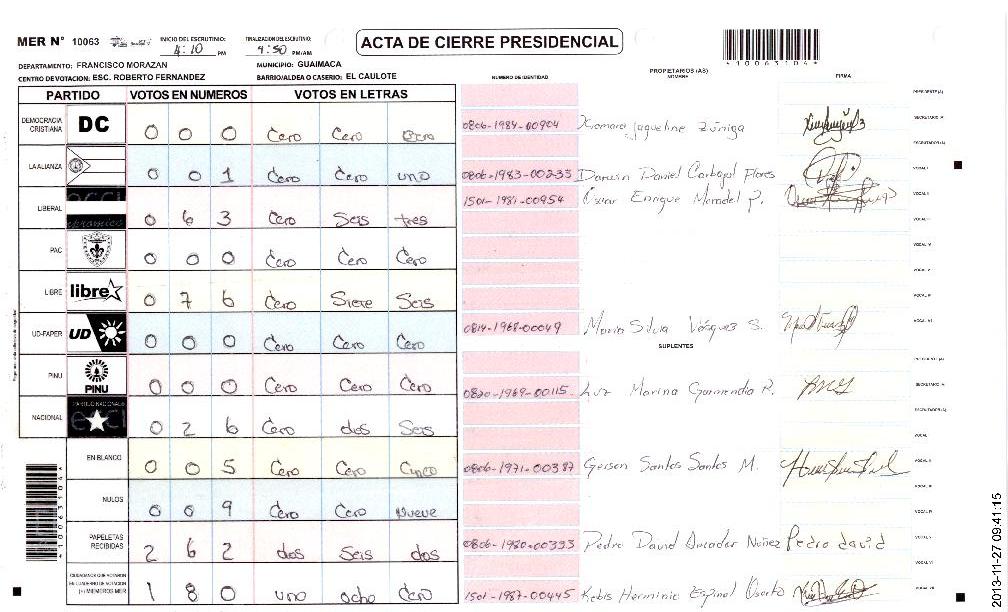 MER N° 10063 INICIO DEL ESCRUTINIO: 4:10 PM FINALIZACION DEL ESCRUTINIO: 4:50 PM/AM ACTA DE CIERRE PRESIDENCIAL
*10063104*
DEPARTAMENTO: FRANCISCO MORAZAN MUNICIPIO: GUAIMACA
CENTRO DE VOTACION: ESC. ROBERTO FERNANDEZ BARRIO/ALDEA O CASERIO: EL CAULOTE
NUMERO DE IDENTIDAD PROPIETARIOS (AS) NOMBRE FIRMA
PARTIDO VOTOS EN NUMEROS VOTOS EN LETRAS
DEMOCRACIA CRISTIANA DC 0 0 0 Cero Cero Cero
LA ALIANZA 0 0 1 Cero Cero uno
LIBERAL 0 6 3 Cero Seis tres
PAC 0 0 0 Cero Cero Cero
LIBRE libre 0 7 6 Cero Siete Seis
UD-FAPER UD 0 0 0 Cero Cero Cero
PINU PINU 0 0 0 Cero Cero Cero
NACIONAL 0 2 6 Cero dos Seis
EN BLANCO 0 0 5 Cero Cero Cinco
NULOS 0 0 9 Cero Cero Nueve
PAPELETAS RECIBIDAS 2 6 2 dos seis dos
CIUDADANOS QUE VOTARON EN CUADERNO DE VOTACION (+) MIEMBROS MER 1 8 0 uno ocho Cero
PRESIDENTE (A)
0806-1984-00904 Xiomara Jaqueline Zúniga SECRETARIO (A)
ESCRUTADOR (A)
0806-1983-00233 Darwin Daniel Carbajal Flores VOCAL I
1501-1981-00954 Oscar Enrique P. VOCAL II
VOCAL III
VOCAL IV
VOCAL V
0814-1968-00049 Maria Silvia Vásquez S. VOCAL VI
SUPLENTES
PRESIDENTE (A)
0820-1969-00115 Luz Marina Garmendia R. SECRETARIO (A)
ESCRUTADOR (A)
VOCAL
0806-1971-00387 Gerson Santos Santos M. VOCAL II
VOCAL III
VOCAL IV
0806-1980-00333 Pedro David Amador Nuñez Pedro david VOCAL V
VOCAL VI
1501-1987-00445 Kebis Herminio Espinal VOCAL VII
*10063104*
2013-11-27 09:41:15